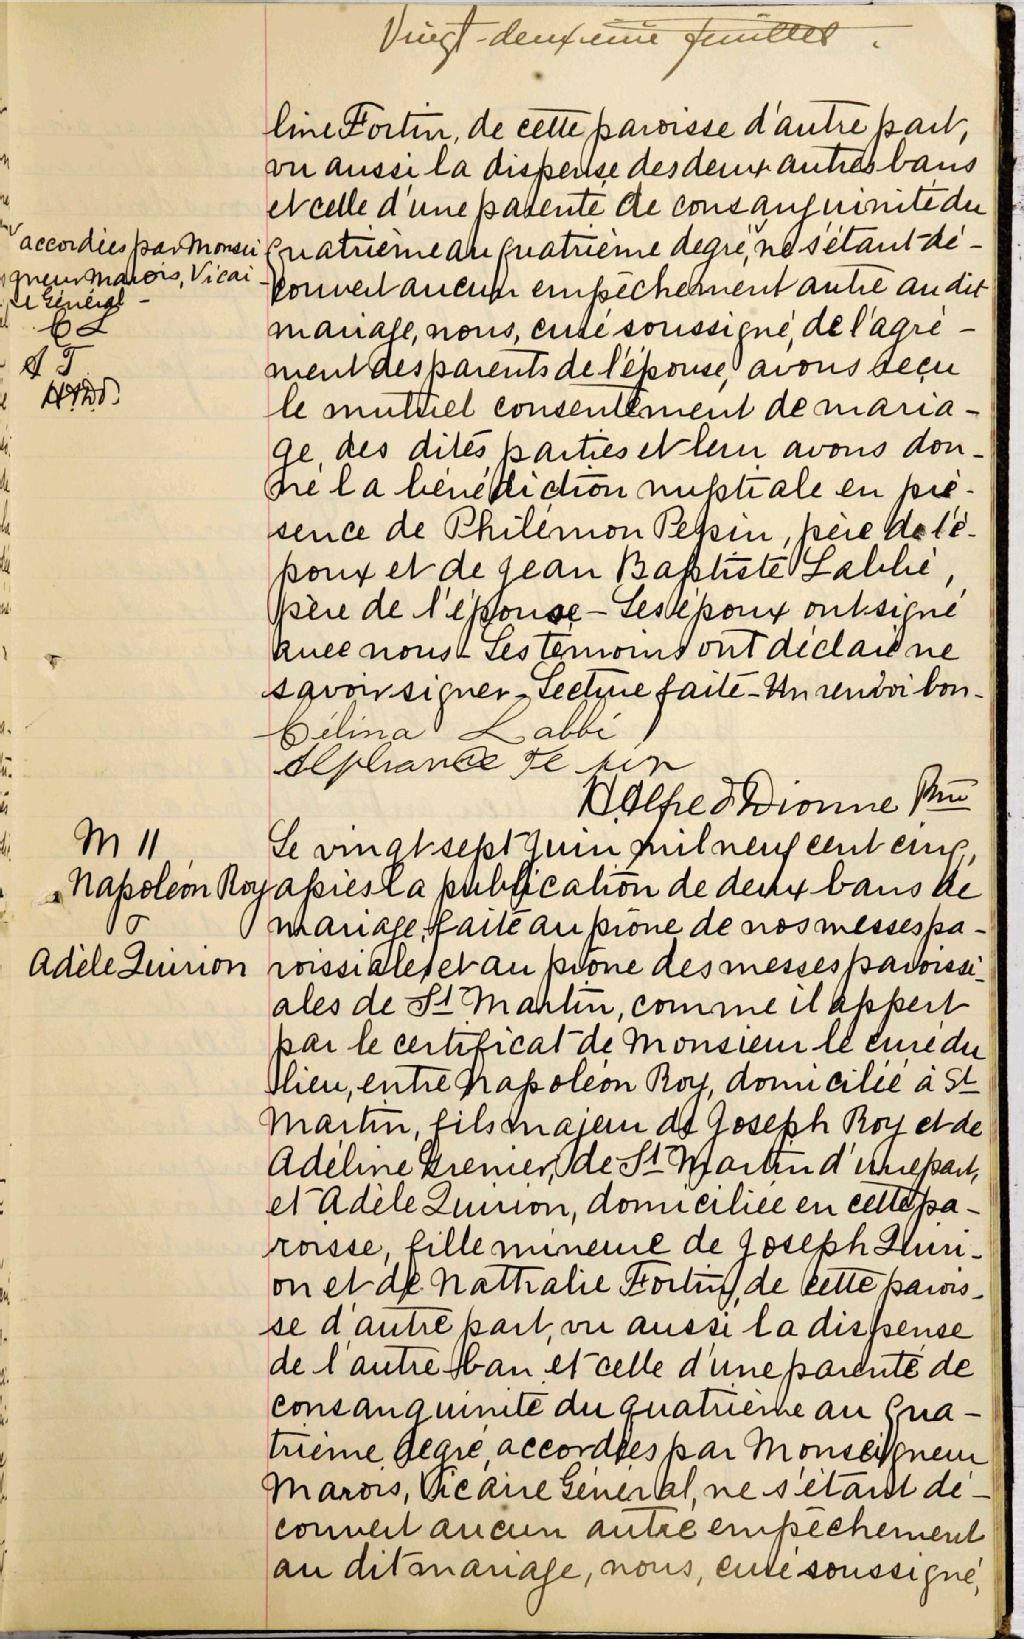 Vingt-deuxième feuillet.
line Fortin, de cette paroisse d'autre part,
vu aussi la dispense des deux autres bans
et celle d'une parenté de consanguinité du
quatrième au quatrième degré, ne s'étant dé-
couvert aucun empêchement autre au dit
mariage, nous, curé soussigné, de l'agré-
ment des parents de l'épouse, avons reçu
le mutuel consentement de maria-
ge des dites parties et leur avons don-
né la bénédiction nuptiale en pré-
sence de Philémon Pepin, père de l'é-
poux et de Jean Baptiste Labbé,
père de l'épouse - Les époux ont signé
avec nous - Les témoins ont déclaré ne
savoir signer - Lecture faite - Un renvoi bon -
accordées par Monsei
gneur Marois, Vicai-
re Général -
C L
A P
Célina Labbé
Alphonse Pepin
H. Alfred Dionne Ptre
M 11
Napoléon Roy
&
Adèle Quirion
Le vingt-sept Juin mil neuf cent cinq,
après la publication de deux bans de
mariage, faite au prône de nos messes pa-
roissiales et au prône des messes paroissi-
ales de St Martin, comme il appert
par le certificat de Monsieur le curé du
lieu, entre Napoléon Roy, domicilié à St
Martin, fils majeur de Joseph Roy et de
Adéline Grenier, de St Martin d'une part,
et Adèle Quirion, domiciliée en cette pa-
roisse, fille mineure de Joseph Quiri-
on et de Nathalie Fortin, de cette parois-
se d'autre part, vu aussi la dispense
de l'autre ban et celle d'une parenté de
consanguinité du quatrième au qua-
trième degré, accordées par Monseigneur
Marois, Vicaire Général, ne s'étant dé-
couvert aucun autre empêchement
au dit mariage, nous, curé soussigné,